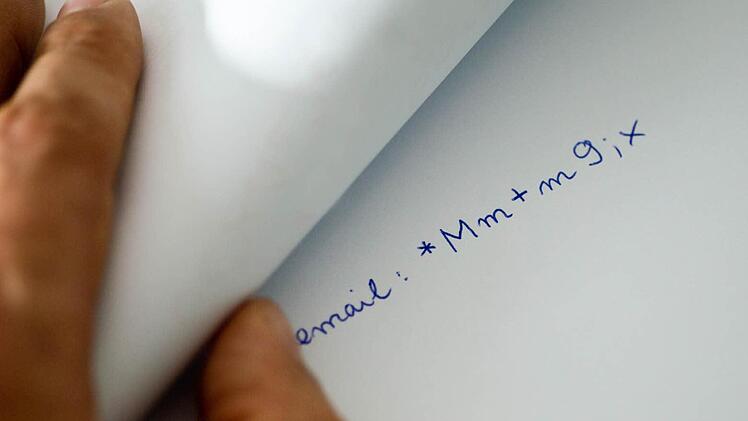 email: *Mm+m9;x